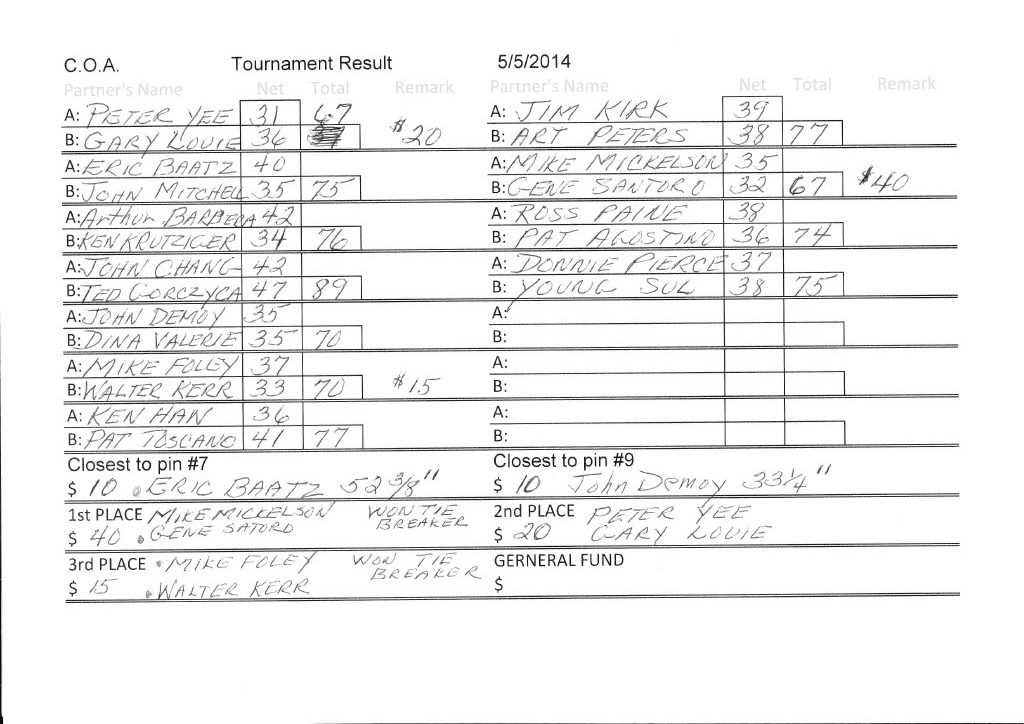 C.O.A. Tournament Result 5/5/2014
Partner's Name Net Total Remark Partner's Name Net Total Remark
A: PETER YEE 31 67 A: JIM KIRK 39
B: GARY LOUIE 36 $20 B: ART PETERS 38 77
A: ERIC BAATZ 40 A: MIKE MICKELSON 35
B: JOHN MITCHELL 35 75 B: GENE SANTORO 32 67 $40
A: Arthur BARBERA 42 A: ROSS PAINE 38
B: KEN KRUTZIGER 34 76 B: PAT AGOSTINO 36 74
A: JOHN CHANG 42 A: DONNIE PIERCE 37
B: TED GORCZYCA 47 89 B: YOUNG SUL 38 75
A: JOHN DEMOY 35 A:
B: DINA VALERIE 35 70 B:
A: MIKE FOLEY 37 A:
B: WALTER KERR 33 70 $15 B:
A: KEN HAN 36 A:
B: PAT TOSCANO 41 77 B:
Closest to pin #7 Closest to pin #9
$ 10 ERIC BAATZ 52 3/8" $ 10 John Demoy 33 1/4"
1st PLACE MIKE MICKELSON WON TIE BREAKER 2nd PLACE PETER YEE
$ 40 GENE SATORO $ 20 GARY LOUIE
3rd PLACE MIKE FOLEY WON TIE BREAKER GERNERAL FUND
$ 15 WALTER KERR $